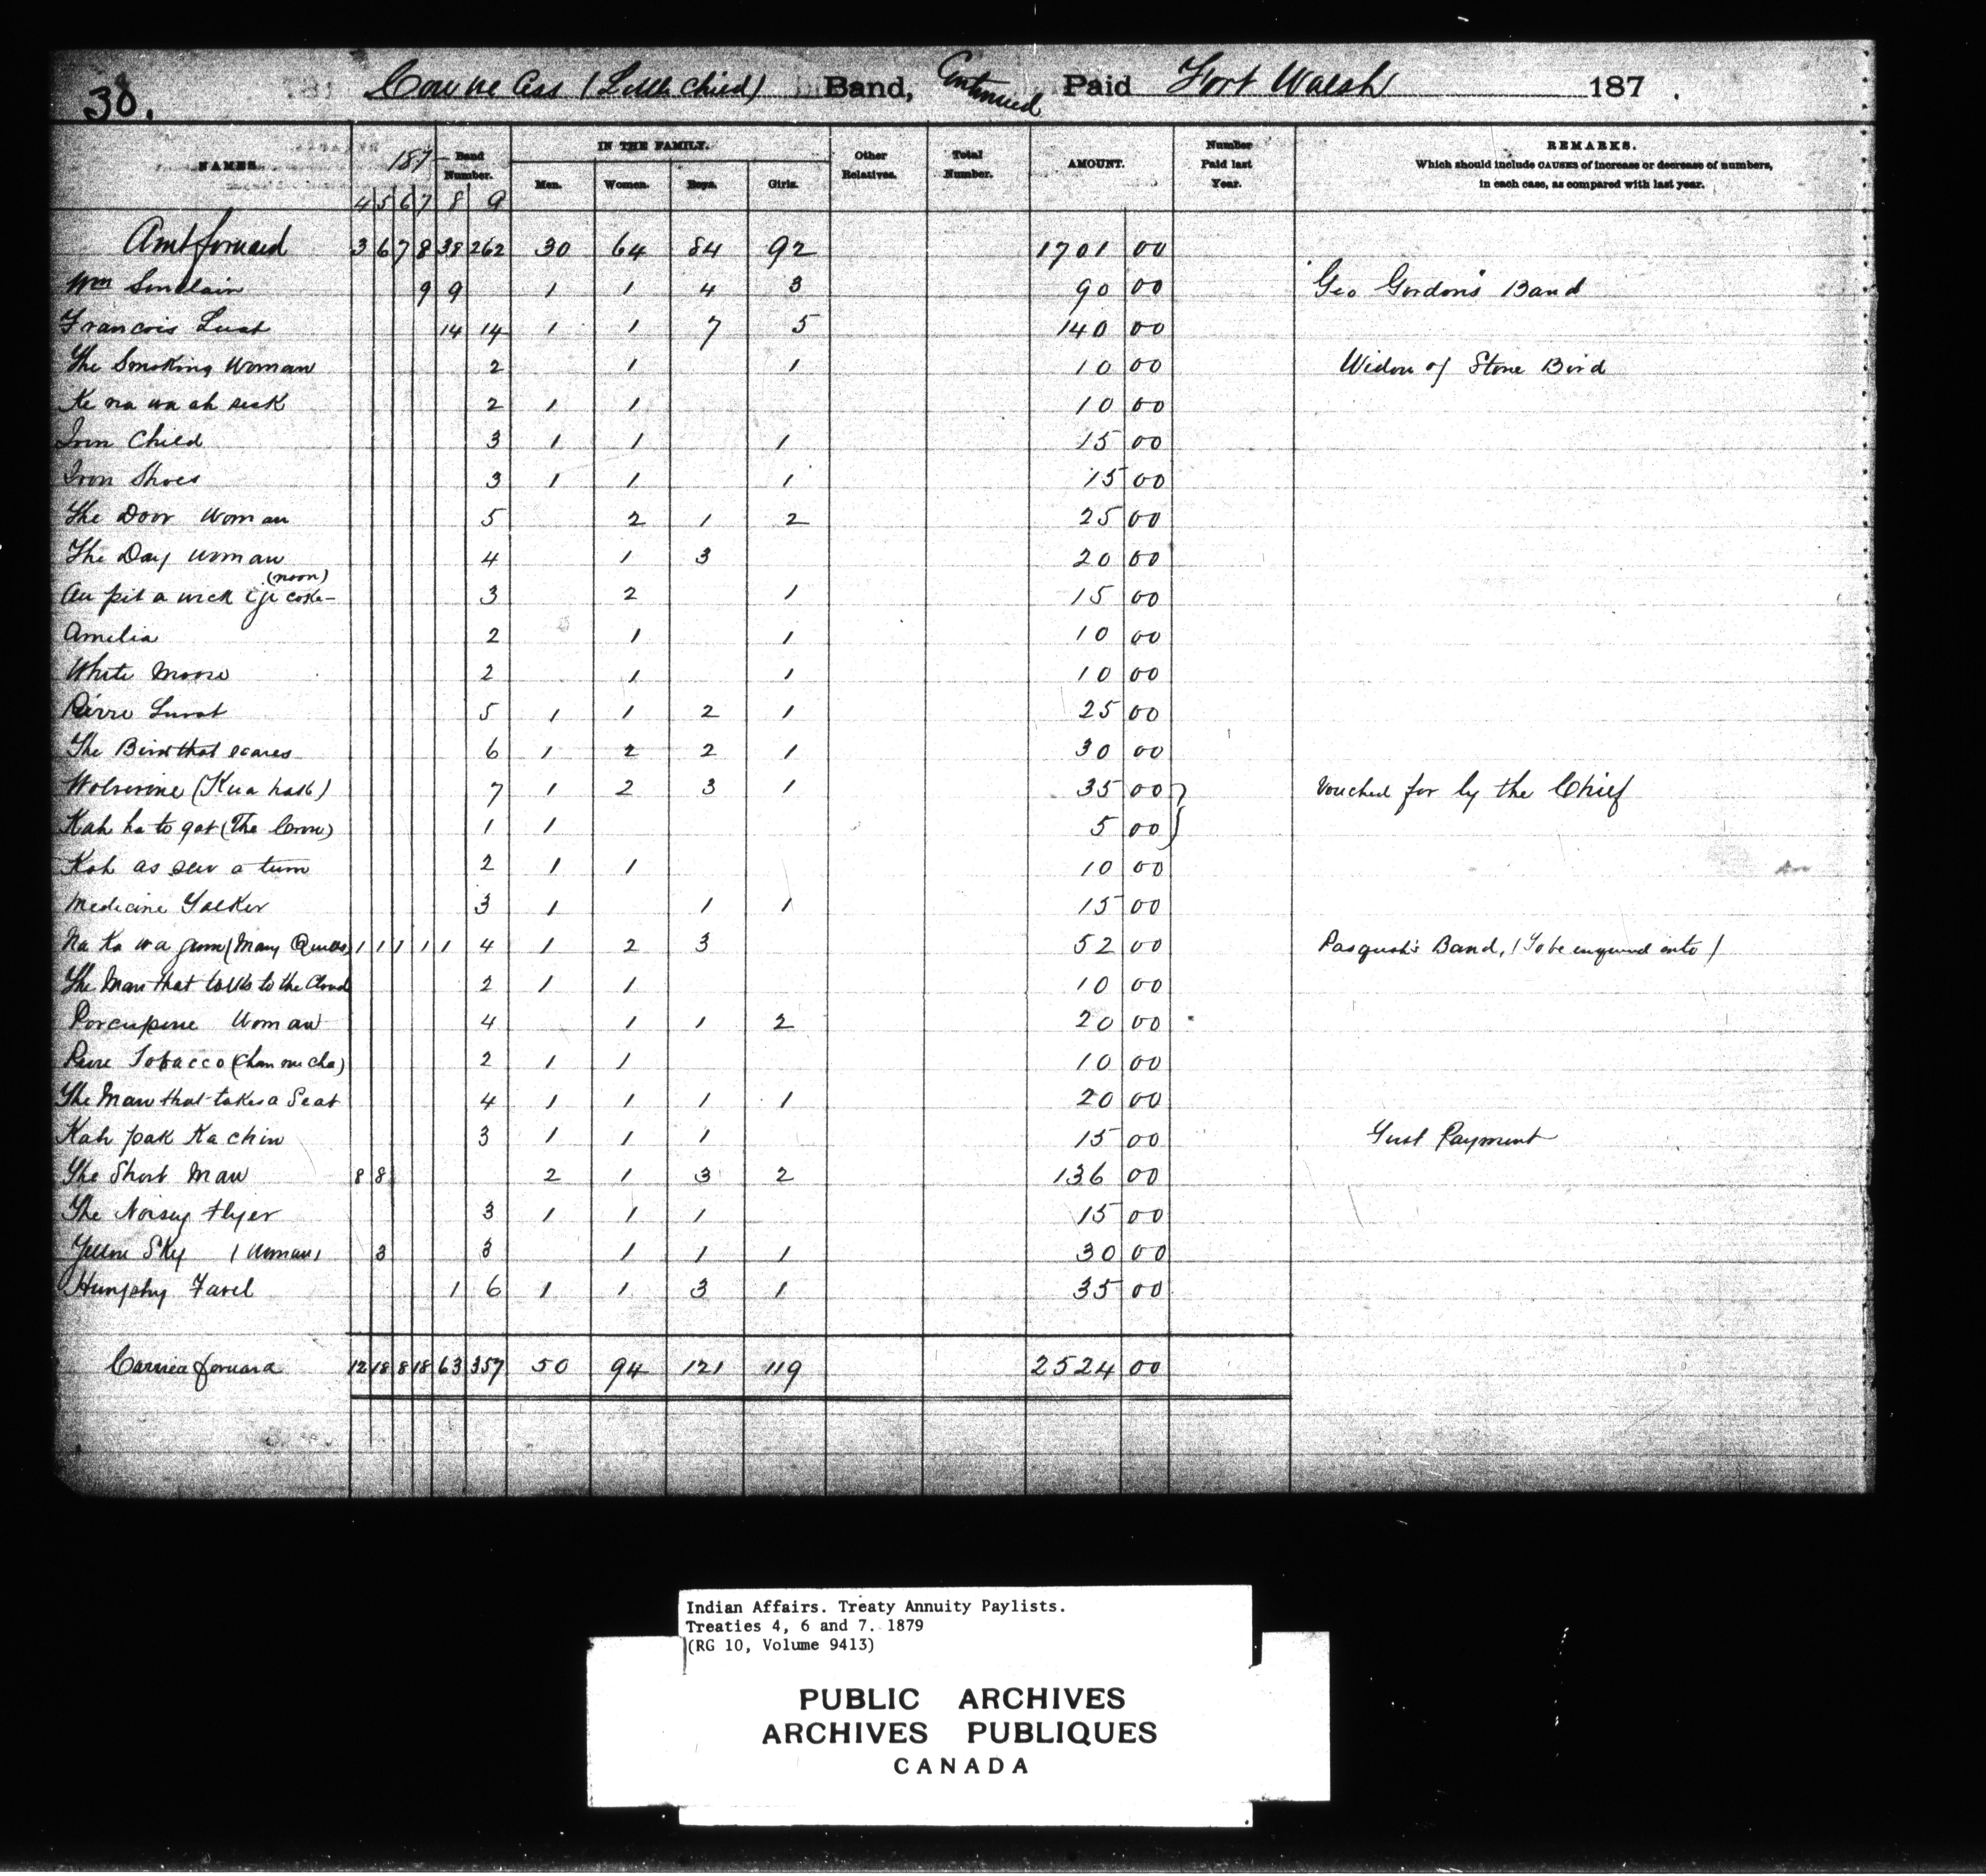 38.
Cow we Cess (Little Child) Band, Continued Paid Fort Walsh 187 .
NAMES. 187 Band Number. IN THE FAMILY. Other Relatives. Total Number. AMOUNT. Number Paid last Year. REMARKS.
Which should include CAUSES of increase or decrease of numbers,
in each case, as compared with last year.
4 5 6 7 8 9 Men. Women. Boys. Girls.
Amt forward 3 6 7 8 38 262 30 64 84 92 1701 00
Wm Sinclair 9 9 1 1 4 3 90 00 Geo Gordon's Band
Francois 14 14 1 1 7 5 140 00
The Smoking Woman 2 1 1 10 00 Widow of Stone Bird
Ke na wa ah sick 2 1 1 10 00
Iron Child 3 1 1 1 15 00
Iron Shoes 3 1 1 1 15 00
The Door Woman 5 2 1 2 25 00
The Day woman 4 1 3 20 00
(noon)
Au pit a wick 3 2 1 15 00
Amelia 2 1 1 10 00
White Moose 2 1 1 10 00
Pierre 5 1 1 2 1 25 00
The Bird that scares 6 1 2 2 1 30 00
Wolverine 7 1 2 3 1 35 00 Vouched for by the Chief
Kah ka to gat (The Crow) 1 1 5 00
Kah as sew a tum 2 1 1 10 00
Medicine Talker 3 1 1 1 15 00
Na Ka wa gum (Many Quills) 1 1 1 1 1 4 1 2 3 52 00 Pasquah's Band, (To be enquired into)
The Man that talks to the Cloud 2 1 1 10 00
Porcupine Woman 4 1 1 2 20 00
Pure Tobacco (Chan nu cha) 2 1 1 10 00
The Man that takes a Seat 4 1 1 1 1 20 00
Kah pak Ka chin 3 1 1 1 15 00 First Payment
The Short Man 8 8 2 1 3 2 136 00
The Noisey flyer 3 1 1 1 15 00
Yellow Sky (Woman) 3 3 1 1 1 30 00
Humphy Favel 1 6 1 1 3 1 35 00
Carried forward 12 18 8 18 63 357 50 94 121 119 2524 00
Indian Affairs. Treaty Annuity Paylists.
Treaties 4, 6 and 7. 1879
(RG 10, Volume 9413)
PUBLIC ARCHIVES
ARCHIVES PUBLIQUES
CANADA